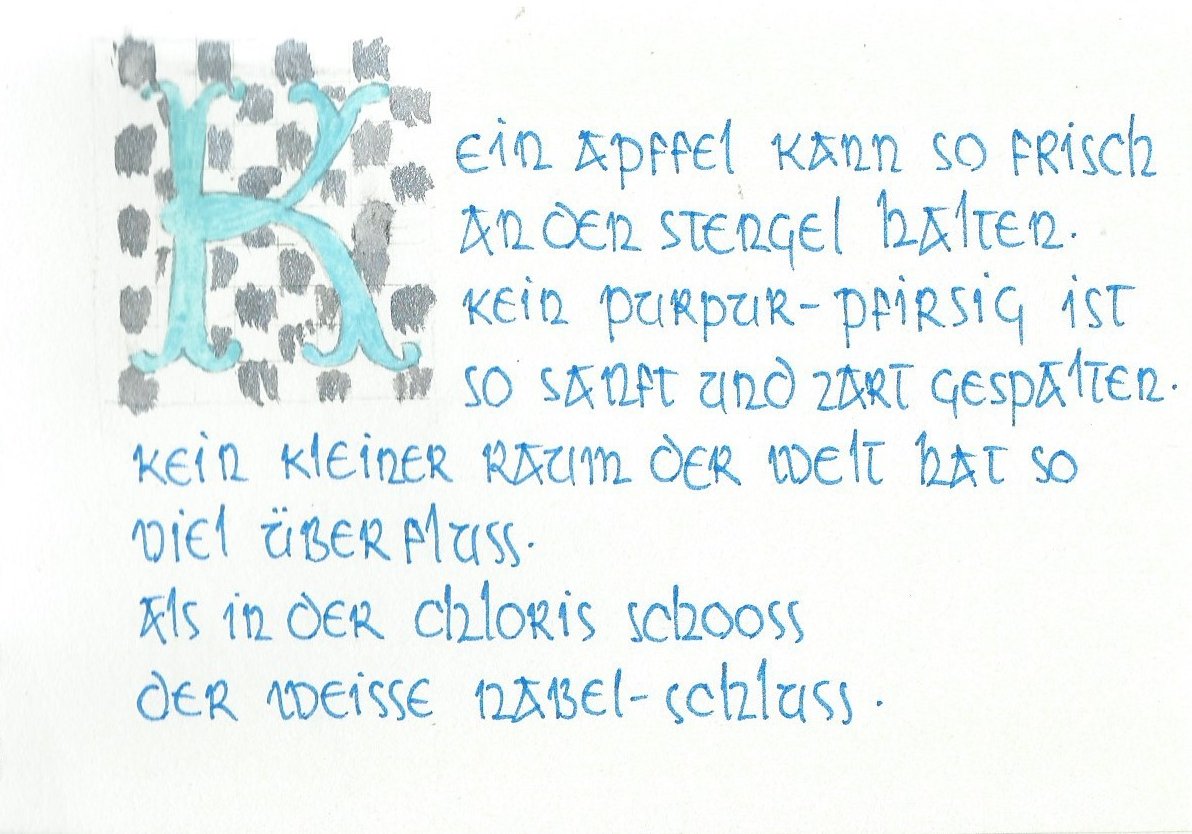 Kein Apffel kann so frisch
an der Stergel halten.
Kein Purpur-Pfirsig ist
so sanft und zart gespalten.
Kein kleiner Raum der Welt hat so
viel Überfluss.
Als in der Chloris Schooss
der weisse Nabel-Schluss.